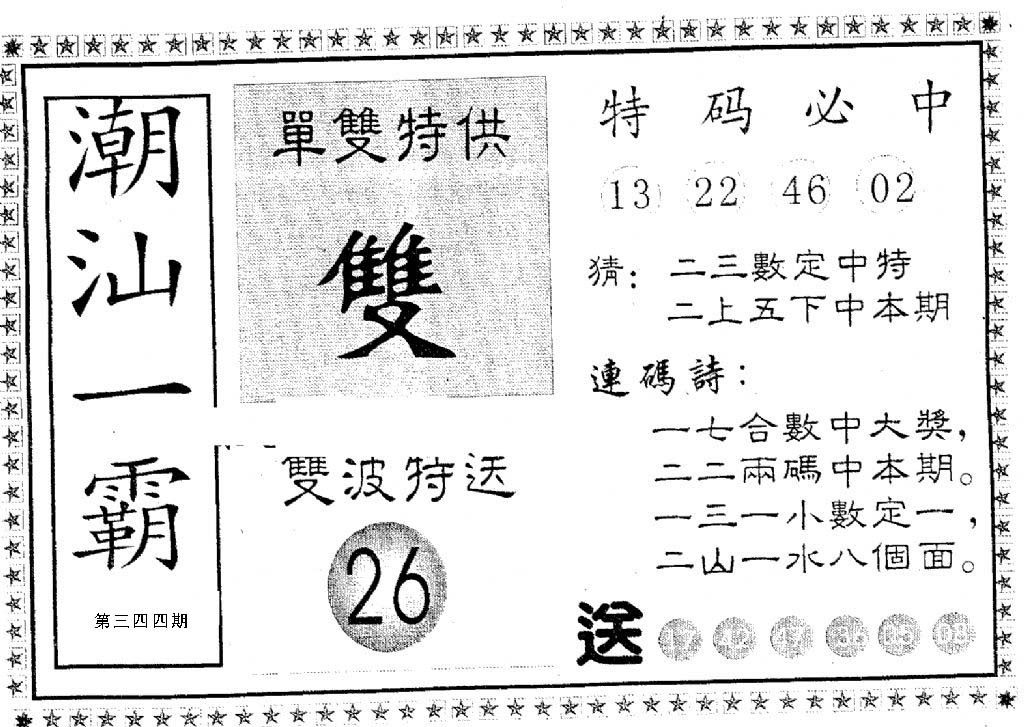 潮汕一霸
第三四四期
單雙特供
雙
雙波特送
26
特码必中
13 22 46 02
猜：二三數定中特
二上五下中本期
連碼詩：
一七合數中大獎，
二二兩碼中本期。
一三一小數定一，
二山一水八個面。
送 17 42 47 36 35 08